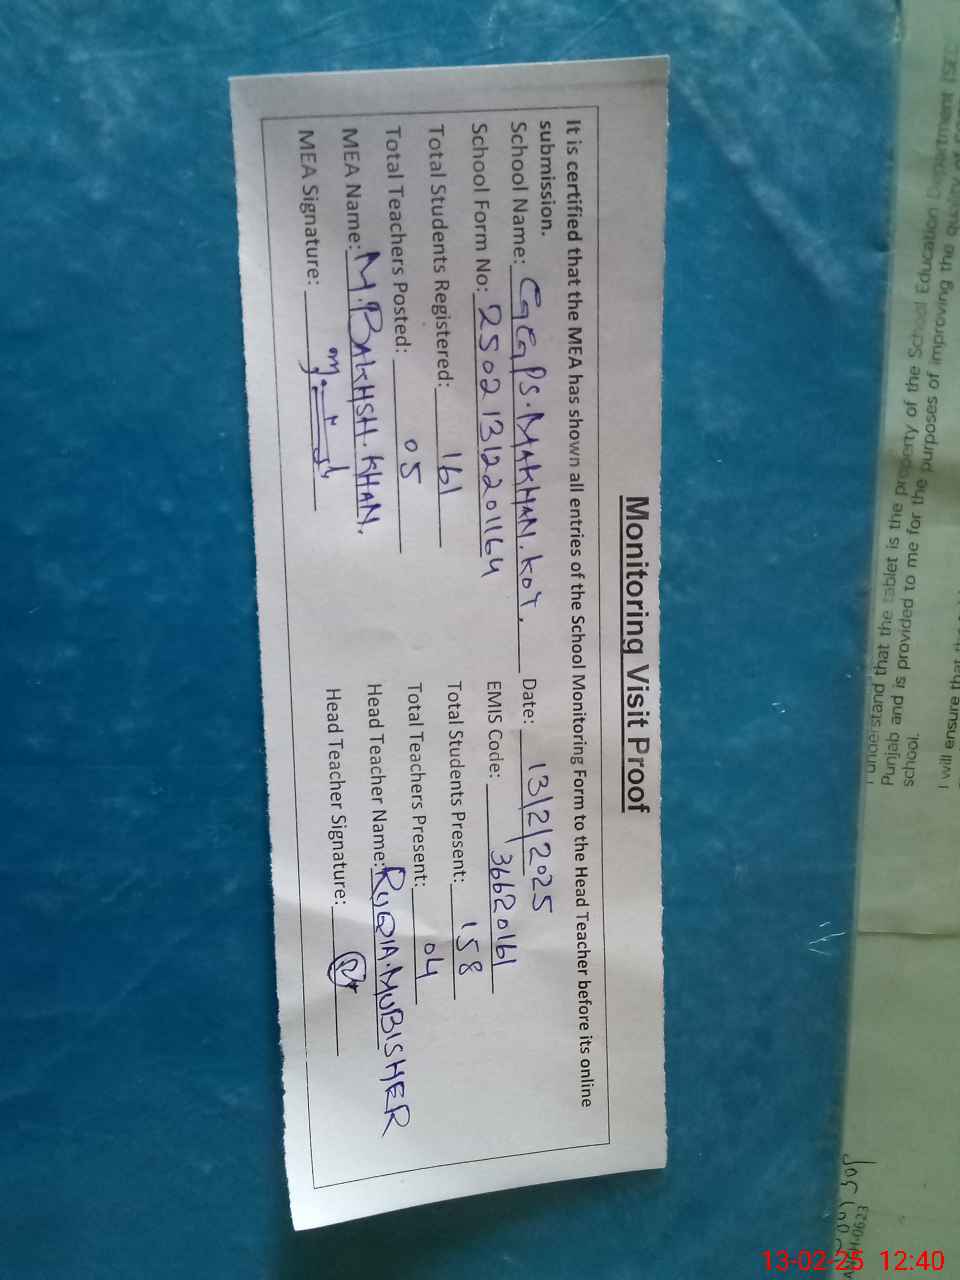 Monitoring Visit Proof
It is certified that the MEA has shown all entries of the School Monitoring Form to the Head Teacher before its online
submission.
School Name: GGPS. MAKHAN. KOT. Date: 13/2/2025
School Form No: 250213122201164 EMIS Code: 36620161
Total Students Registered: 161 Total Students Present: 158
Total Teachers Posted: 05 Total Teachers Present: 04
MEA Name: M. BAKHSH. KHAN. Head Teacher Name: RUQIA. MUBISHER
MEA Signature: Head Teacher Signature:
I understand that the tablet is the property of the School Education Department
Punjab and is provided to me for the purposes of improving the
school.
I will ensure that
13-02-25 12:40